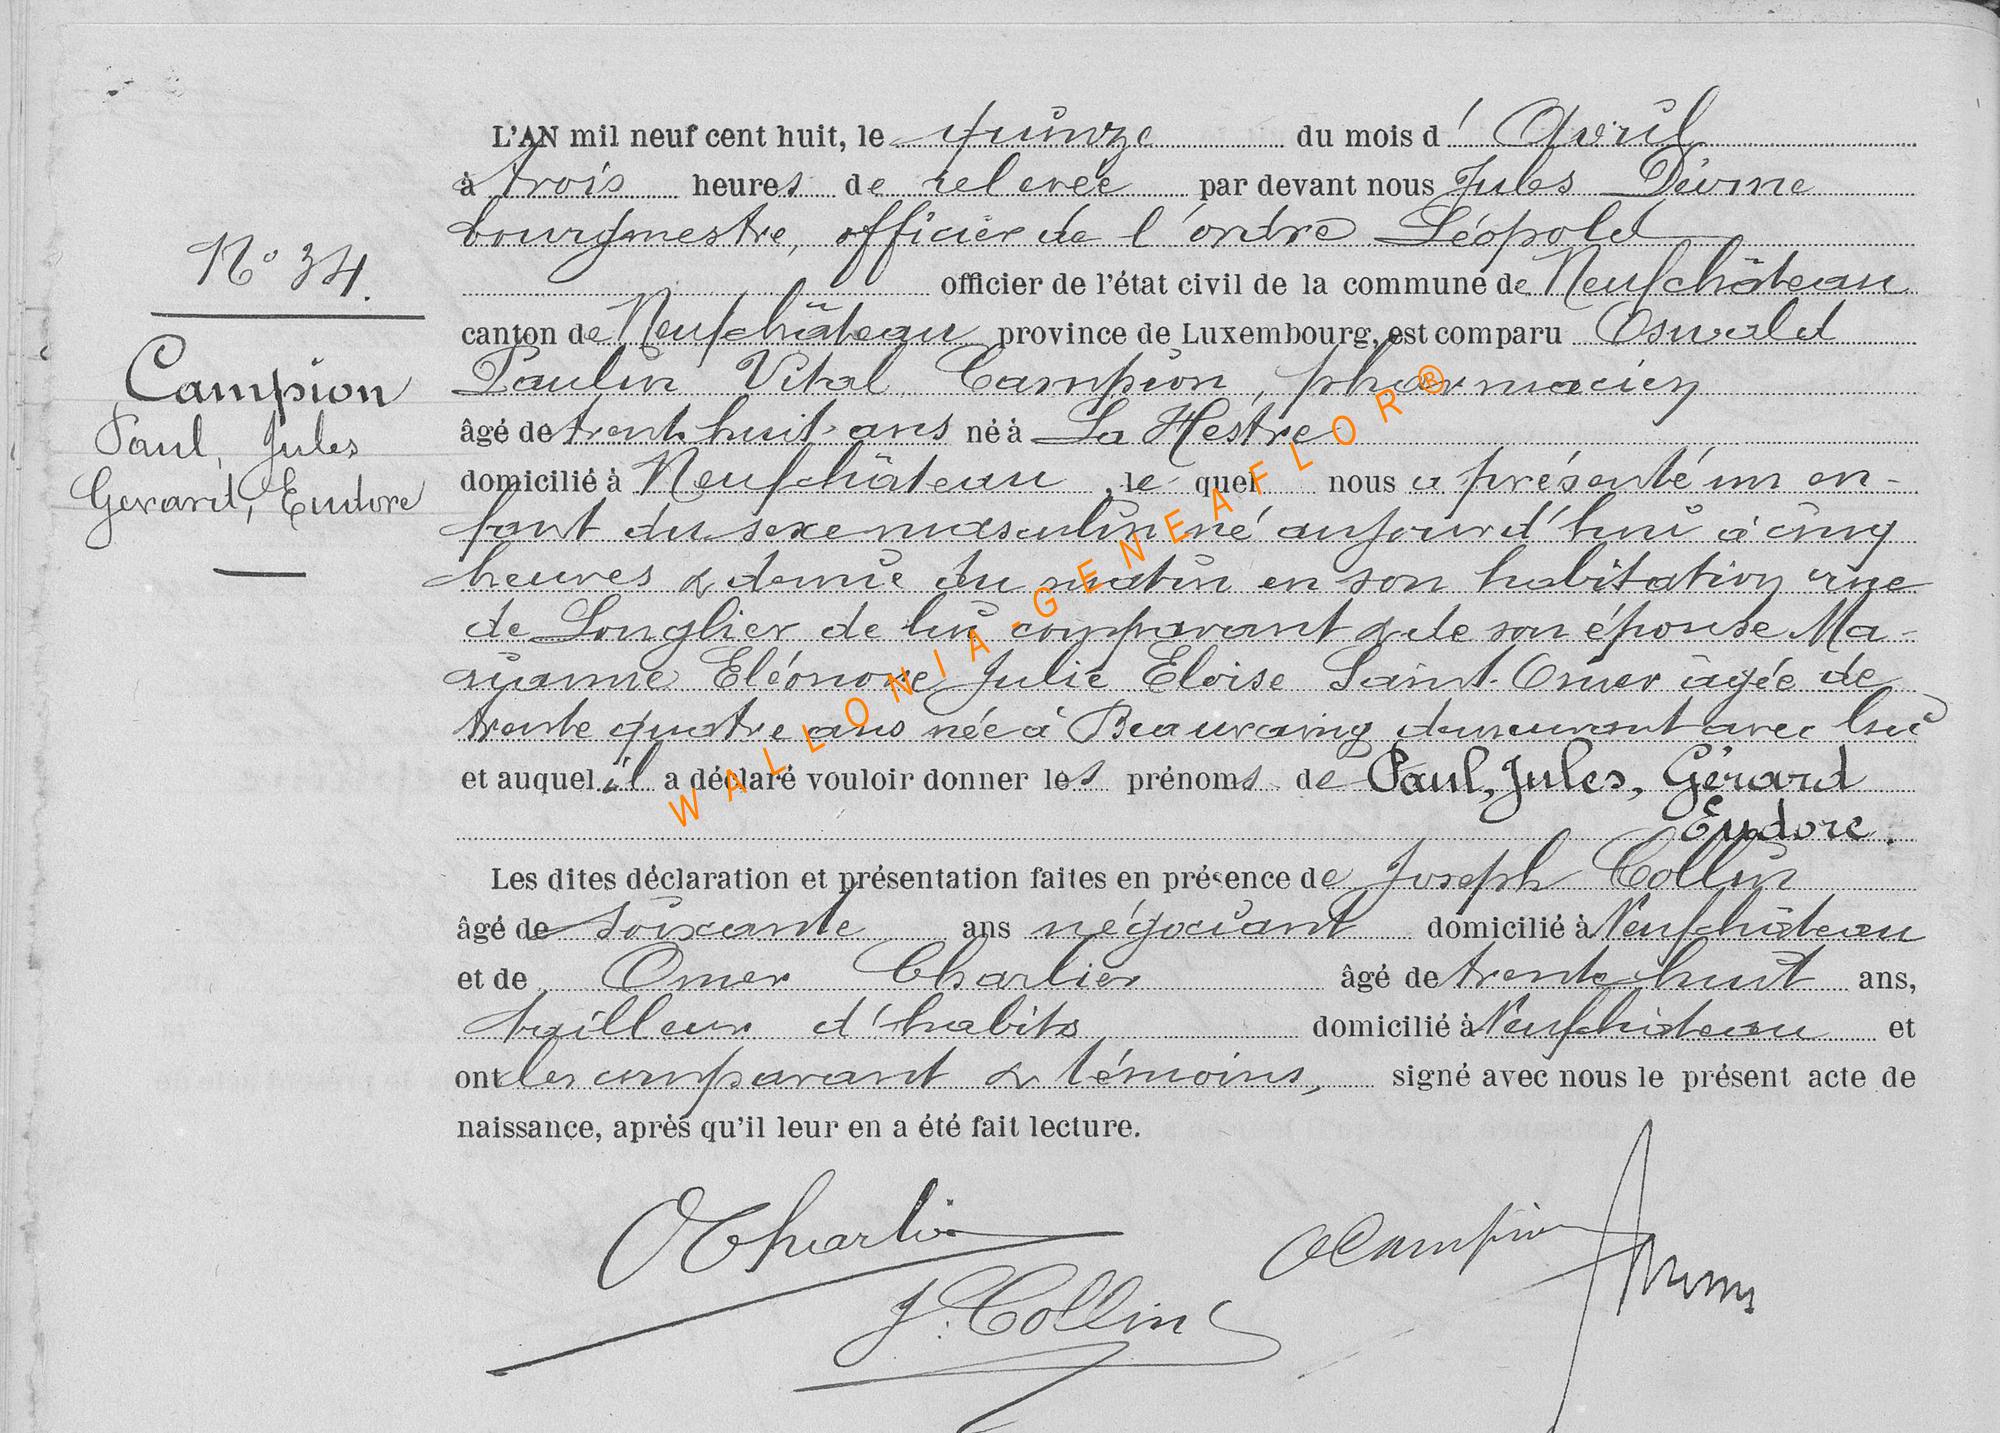 N° 34.
Campion
Paul, Jules
Gerard, Eudore
L'AN mil neuf cent huit, le quinze du mois d' Avril
à trois heures de relevée par devant nous Jules
bourgmestre, officier de l'ordre Léopold
officier de l'état civil de la commune de Neufchâteau
canton de Neufchâteau province de Luxembourg, est comparu Oswald
Paulin Vital Campion, pharmacien
âgé de trente huit ans né à La Hestre
domicilié à Neufchâteau, le quel nous a présenté un en-
fant du sexe masculin né aujourd'hui à cinq
heures & demie du matin en son habitation rue
de Longlier de lui comparant & de son épouse Ma-
ryanne Eléonore Julie Eloise Saint-Omer âgée de
trente quatre ans née à Beauraing demeurant avec lui
et auquel il a déclaré vouloir donner les prénoms de Paul, Jules, Gérard
Eudore.
Les dites déclaration et présentation faites en présence de Joseph Collin
âgé de soixante ans négociant domicilié à Neufchâteau
et de Omer Charlier âgé de trente huit ans,
tailleur d'habits domicilié à Neufchâteau et
ont les comparant & témoins, signé avec nous le présent acte de
naissance, après qu'il leur en a été fait lecture.
OCharlier
OCampion
J. Collin
WALLONIA-GENEAFLOR®